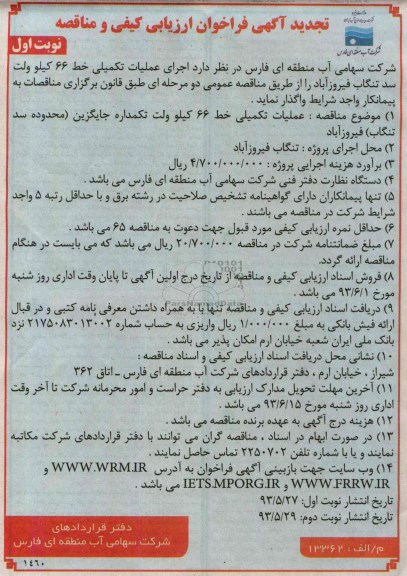 تجدید آگهی فراخوان ارزیابی کیفی و مناقصه
نوبت اول
شرکت سهامی آب منطقه ای فارس در نظر دارد اجرای عملیات تکمیلی خط ۶۶ کیلو ولت
سد تنگاب فیروزآباد را از طریق مناقصه عمومی دو مرحله ای طبق قانون برگزاری مناقصات به
پیمانکار واجد شرایط واگذار نماید .
۱) موضوع مناقصه : عملیات تکمیلی خط ۶۶ کیلو ولت تکمداره جایگزین (محدوده سد
تنگاب) فیروزآباد
۲) محل اجرای پروژه : تنگاب فیروزآباد
۳) برآورد هزینه اجرایی پروژه : ۴/۷۰۰/۰۰۰/۰۰۰ ریال
۴) دستگاه نظارت دفتر فنی شرکت سهامی آب منطقه ای فارس می باشد .
۵) تنها پیمانکاران دارای گواهینامه تشخیص صلاحیت در رشته برق و با حداقل رتبه ۵ واجد
شرایط شرکت در مناقصه می باشند .
۶) حداقل نمره ارزیابی کیفی مورد قبول جهت دعوت به مناقصه ۶۵ می باشد .
۷) مبلغ ضمانتنامه شرکت در مناقصه ۲۰/۷۰۰/۰۰۰ ریال می باشد که می بایست در هنگام
مناقصه ارائه گردد.
۸) فروش اسناد ارزیابی کیفی و مناقصه از تاریخ درج اولین آگهی تا پایان وقت اداری روز شنبه
مورخ ۹۳/۶/۱ می باشد .
۹) دریافت اسناد ارزیابی کیفی و مناقصه تنها با به همراه داشتن معرفی نامه کتبی و در قبال
ارائه فیش بانکی به مبلغ ۱/۰۰۰/۰۰۰ ریال واریزی به حساب شماره ۲۱۷۵۰۸۳۰۱۳۰۰۲ نزد
بانک ملی ایران شعبه خیابان ارم امکان پذیر می باشد .
۱۰) نشانی محل دریافت اسناد ارزیابی کیفی و اسناد مناقصه :
شیراز ، خیابان ارم ، دفتر قراردادهای شرکت آب منطقه ای فارس ـ اتاق ۳۶۲
۱۱) آخرین مهلت تحویل مدارک ارزیابی به دفتر حراست و امور محرمانه شرکت تا آخر وقت
اداری روز شنبه مورخ ۹۳/۶/۱۵ می باشد .
۱۲) هزینه درج آگهی به عهده برنده مناقصه می باشد .
۱۳) در صورت ابهام در اسناد ، مناقصه گران می توانند با دفتر قراردادهای شرکت مکاتبه
نمایند و یا با شماره تلفن ۲۲۵۰۷۰۲ تماس حاصل نمایند .
۱۴) وب سایت جهت بازبینی آگهی فراخوان به آدرس WWW.WRM.IR و
WWW.FRRW.IR و IETS.MPORG.IR می باشد .
تاریخ انتشار نوبت اول: ۹۳/۵/۲۷
تاریخ انتشار نوبت دوم: ۹۳/۵/۲۹
دفتر قراردادهای
شرکت سهامی آب منطقه ای فارس
م/الف : ۱۳۳۶۲
۱۴۶۰